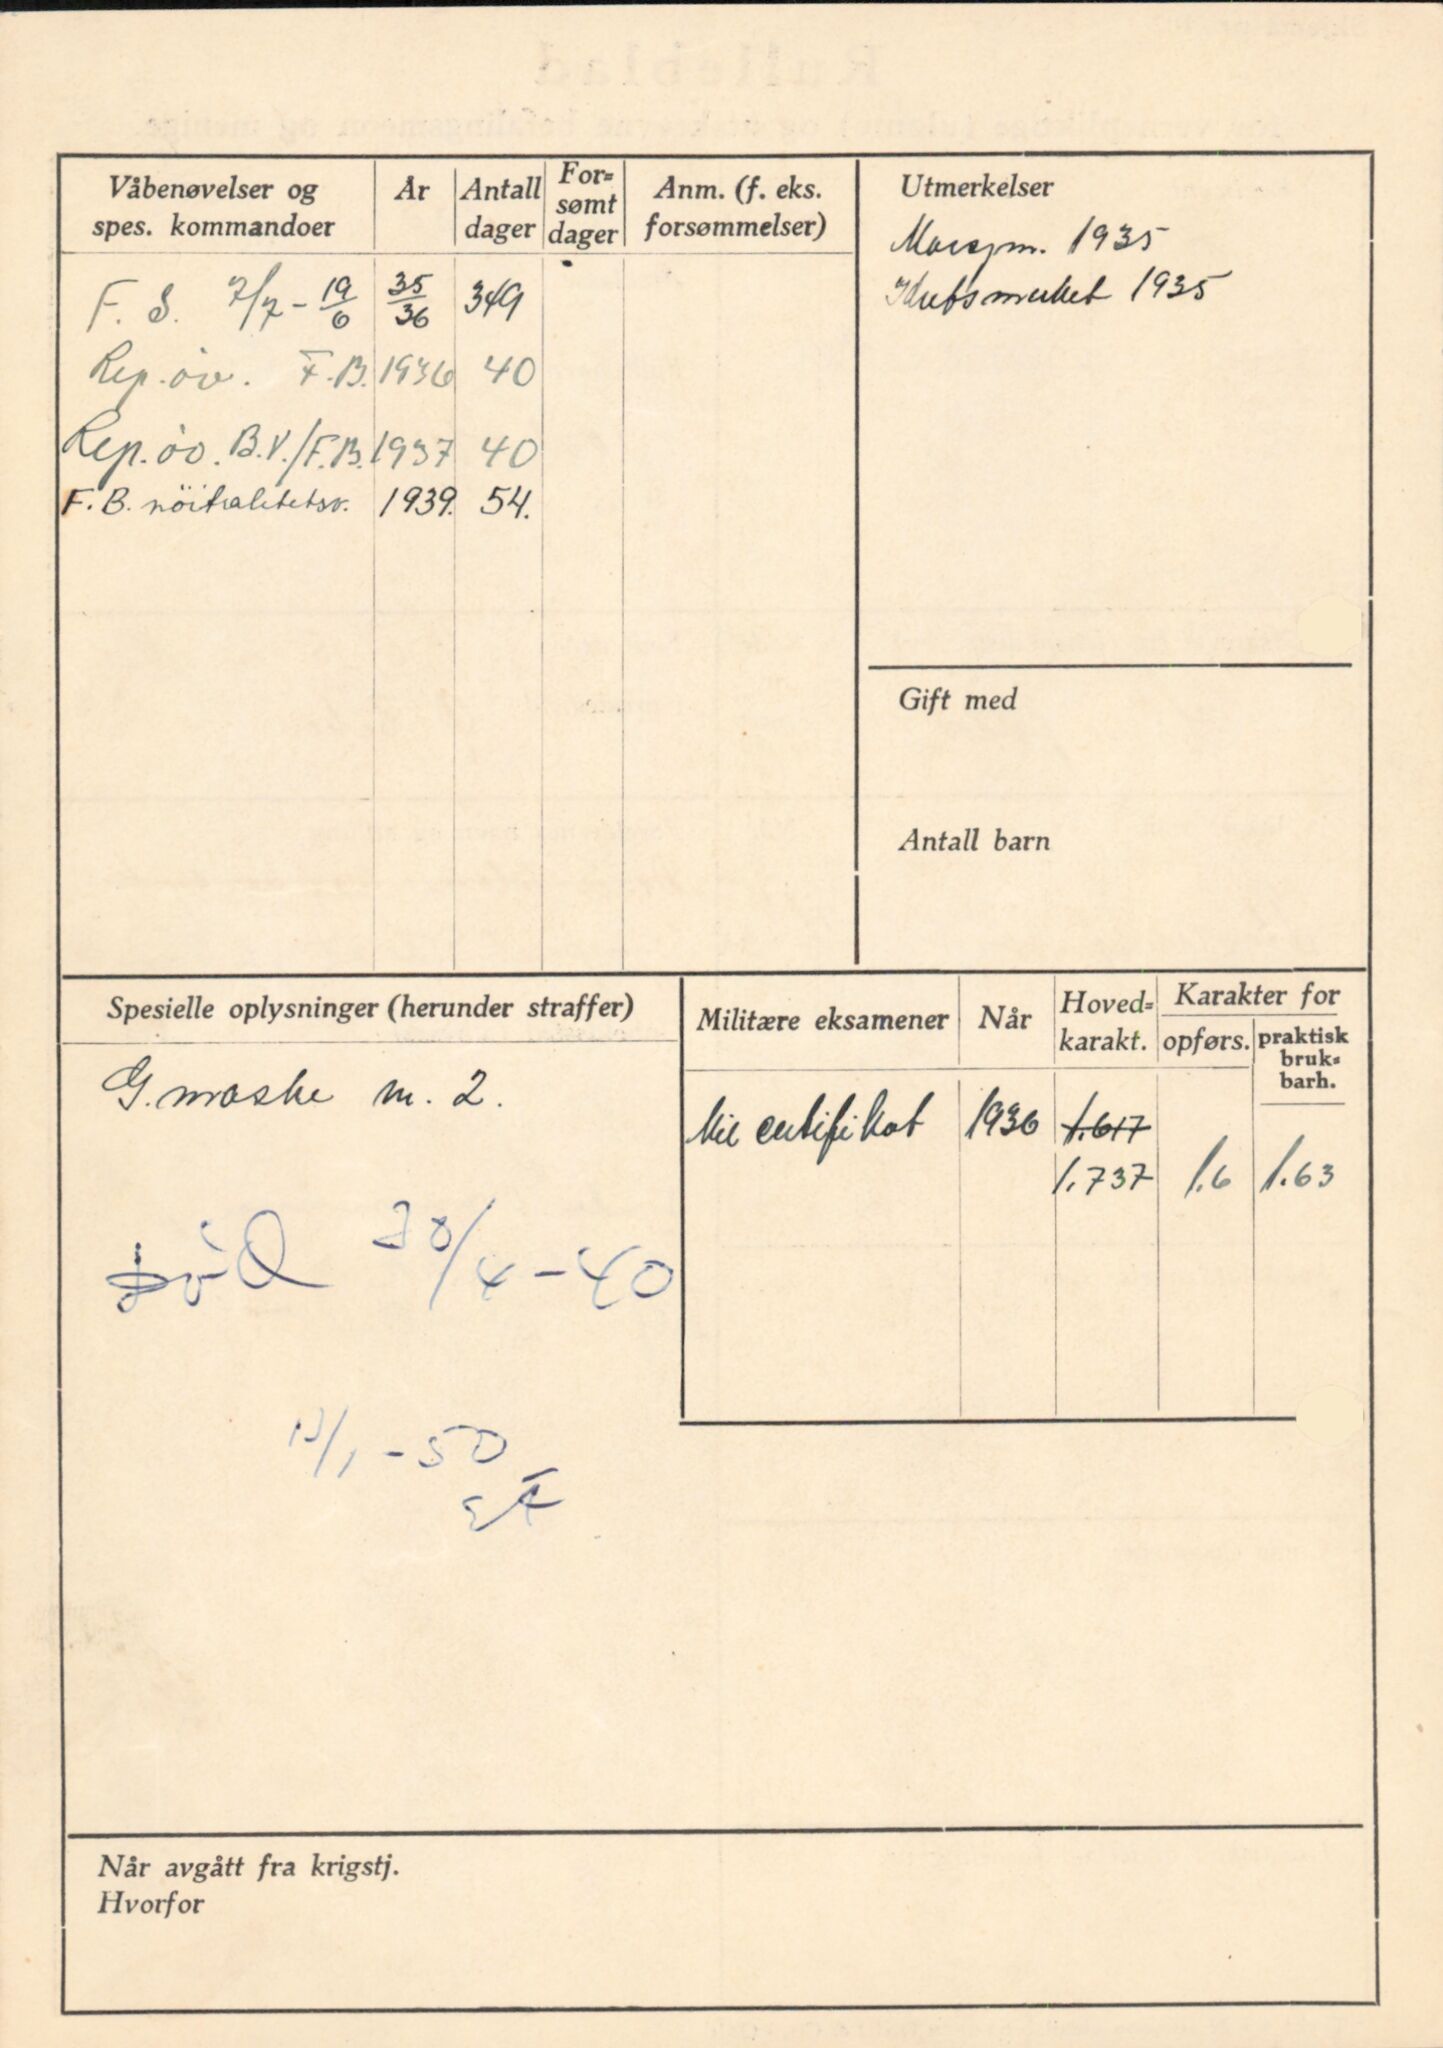 Våbenøvelser og spes. kommandoer | År | Antall dager | For=sømt dager | Anm. (f. eks. forsømmelser)
F. S. 7/7 - 19/6 | 35/36 | 349
Rep. öv. F.B. | 1936 | 40
Rep. öv. B.V./F.B. | 1937 | 40
F.B. nöitralitetsv. | 1939. | 54.
Utmerkelser
1935
Idretsmerket 1935
Gift med
Antall barn
Spesielle oplysninger (herunder straffer)
G.maske m. 2.
död 30/4 - 40
/1 - 50
Militære eksamener | Når | Hoved=karakt. | Karakter for opførs. | praktisk bruk=barh.
Mil certifikat | 1936 | 1.617
1.737 | 1.6 | 1.63
Når avgått fra krigstj.
Hvorfor